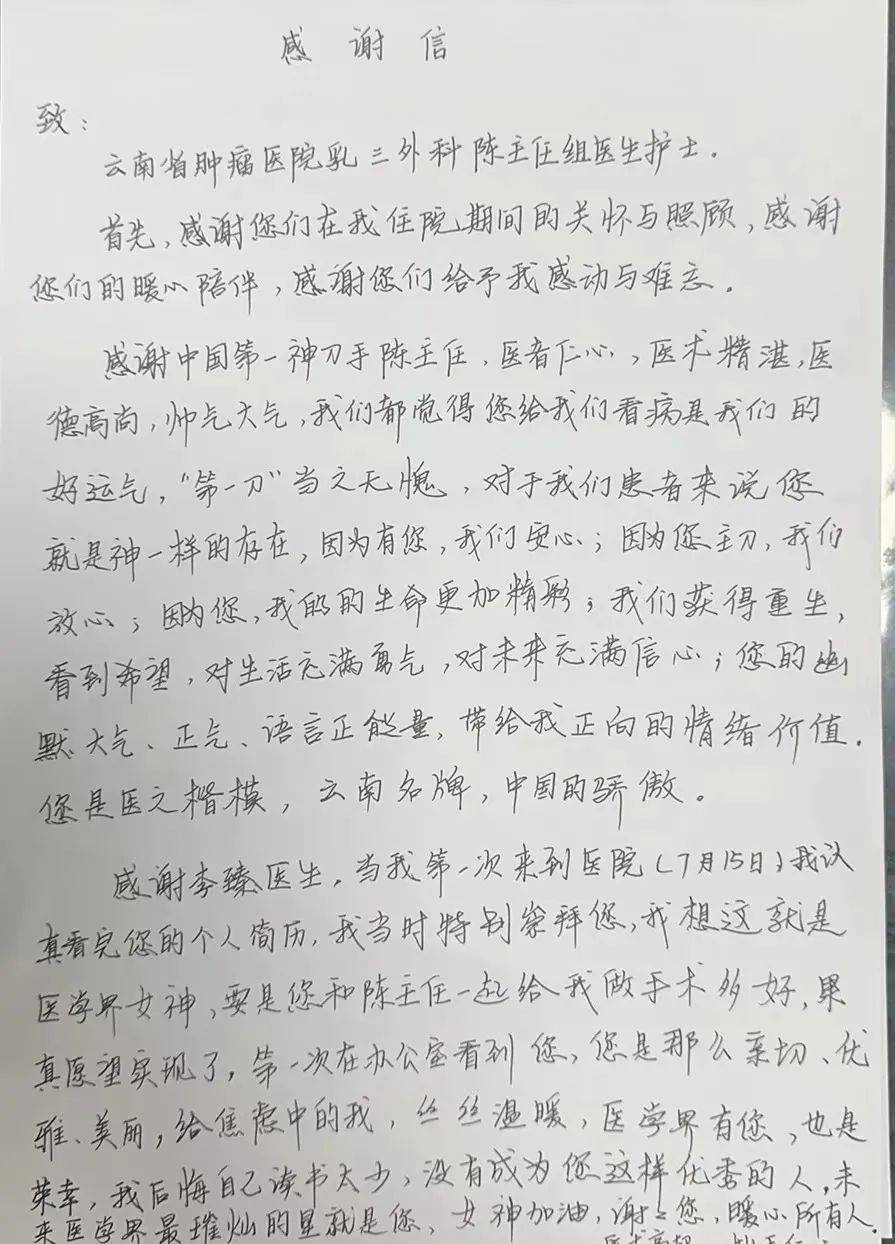 感谢信
致：
云南省肿瘤医院乳三外科陈主任组医生护士．
首先，感谢您们在我住院期间的关怀与照顾，感谢
您们的暖心陪伴，感谢您们给予我感动与难忘．
感谢中国第一神刀手陈主任，医者仁心，医术精湛，医
德高尚，帅气大气，我们都觉得您给我们看病是我们的
好运气，“第一刀”当之无愧，对于我们患者来说您
就是神一样的存在，因为有您，我们安心；因为您主刀，我们
放心；因为您，我的的生命更加精彩；我们获得重生，
看到希望，对生活充满勇气，对未来充满信心；您的幽
默大气、正气、语言正能量，带给我正向的情绪价值．
您是医之楷模，云南名牌，中国的骄傲。
感谢李臻医生，当我第一次来到医院（7月15日）我认
真看完您的个人简历，我当时特别崇拜您，我想这就是
医学界女神，要是您和陈主任一起给我做手术多好，果
真愿望实现了，第一次在办公室看到您，您是那么亲切、优
雅、美丽，给焦虑中的我，丝丝温暖，医学界有您，也是
荣幸，我后悔自己读书太少，没有成为您这样优秀的人，未
来医学界最璀灿的星就是您、女神加油，谢谢您，暖心所有人．